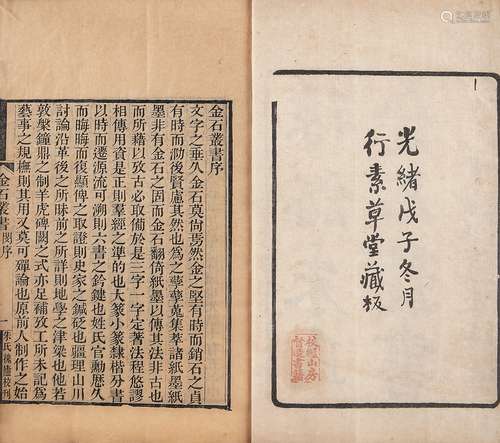 光緒戊子冬月
行素草堂藏板
金石叢書序
文字之垂久金石莫尙焉然金之堅有時而銷石之貞
有時而泐後賢慮其然也爲之孳孳蒐集萃諸紙墨紙
墨非有金石之固而金石翻倚紙墨以傳其法非古也
而所以攷古必取備於是三字一字定著法程悠謬
相傳用資是正則羣經之準的也大篆小篆隸楷分書
以時而遷源流可溯則六書之鈐鍵也姓氏官勳歷久
而晦晦而復顯俾之取證則史家之鍼砭也疆理山川
討論沿革後之所昧前之所詳則地學之津梁也他若
敦槃鐘鼎之制羊虎碑闕之式亦足補攷工所未記爲
藝事之規橅則其用又莫可殫論也原前人制作之始
金石叢書
序
一
朱氏槐廬校刊